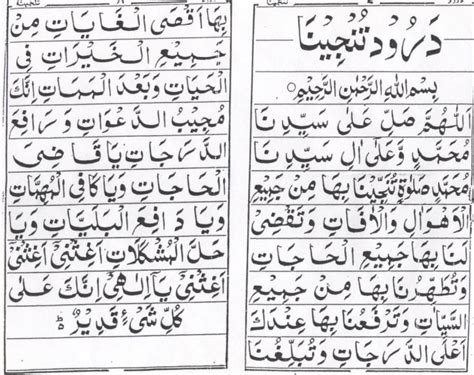 دَرُود تُنَجِّينَا
بِسْمِ اللهِ الرَّحْمٰنِ الرَّحِيْمِ
اَللّٰهُمَّ صَلِّ عَلٰى سَيِّدِنَا
مُحَمَّدٍ وَّعَلٰى اٰلِ سَيِّدِنَا
مُحَمَّدٍ صَلٰوةً تُنَجِّيْنَا بِهَا مِنْ جَمِيْعِ
الْاَهْوَالِ وَالْاٰفَاتِ وَتَقْضِىْ
لَنَا بِهَا جَمِيْعَ الْحَاجَاتِ
وَتُطَهِّرُنَا بِهَا مِنْ جَمِيْعِ
السَّيِّاٰتِ وَتَرْفَعُنَا بِهَا عِنْدَكَ
اَعْلَى الدَّرَجَاتِ وَتُبَلِّغُنَا
بِهَا اَقْصَى الْغَايَاتِ مِنْ
جَمِيْعِ الْخَيْرَاتِ فِى
الْحَيَاتِ وَبَعْدَ الْمَمَاتِ اِنَّكَ
مُجِيْبُ الدَّعَوَاتِ وَرَافِعُ
الدَّرَجَاتِ يَا قَاضِىَ
الْحَاجَاتِ وَيَا كَافِىَ الْمُهِمَّاتِ
وَيَا دَافِعَ الْبَلِيَّاتِ وَيَا
حَلَّ الْمُشْكِلَاتِ اَغِثْنِىْ اَغِثْنِىْ
اَغِثْنِىْ يَا اِلٰهِىْ اِنَّكَ عَلٰى
كُلِّ شَىْءٍ قَدِيْرٌ